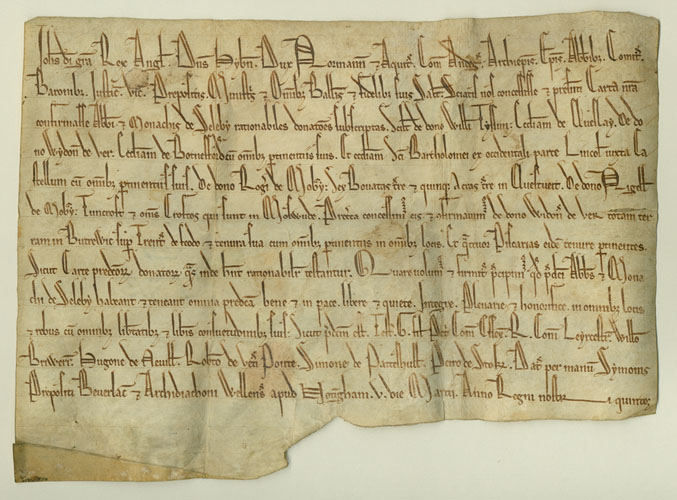 Johs di gra Rex Angl. Dns Hybn. Dux Normann & Aquit. Com Andeg. Archiepis. Epis. Abbibz. Comit.
Baronibz. Justic. Vic. Prepositis. Ministris & Omibz Ballis & fidelibz suis Salt. Sciatis nos concessisse & psenti Carta nra
confirmasse Abbi & Monachis de Seleby rationabiles donatoes subscriptas. Scilt de dono Willi Tysun: Ecctiam de Do
no Wydon de ver. Ecctiam de cu omibz ptinentiis suis. Et ecctiam Sci Bartholomei ex occidentali parte Lincol iuxta Ca
stellum cu omibz ptinentiis suis. De dono Rog de Moby: sex Bouatas tre & quinq Acras tre in De dono Nigell
de Moby: & oms Croftos qui sunt in De dono Widon de ver totam ter
ram in Butrewic sup Trent de feodo & tenura sua cum omibz ptinentiis in omibz locis. Et Piscarias eide tenure ptinentes.
Sicut Carte donatorz inde hnt rationabilit testantur. Quare volum & firmit pcipim qd pdict Abbs & Mona
chi de Seleby habeant & teneant omnia predca bene & in pace. libere & quiete. Integre. Plenarie & honorifice. in omnibz locis
& rebus cu omnibz libtatibz & libis consuetudinibz suis: Sicut pdcm est. Test. G. fil Pet Com Essex. R. Com Leycestr. Willo
Brewerr. Hugone de Nevill. Robto de vet Ponte. Simone de Pateshull. Petro de Stok. Dat per manu Symonis
Prepositi Beverlac & Archidiaconi Wellens apud v. die Marcii. Anno Regni nostri quinto